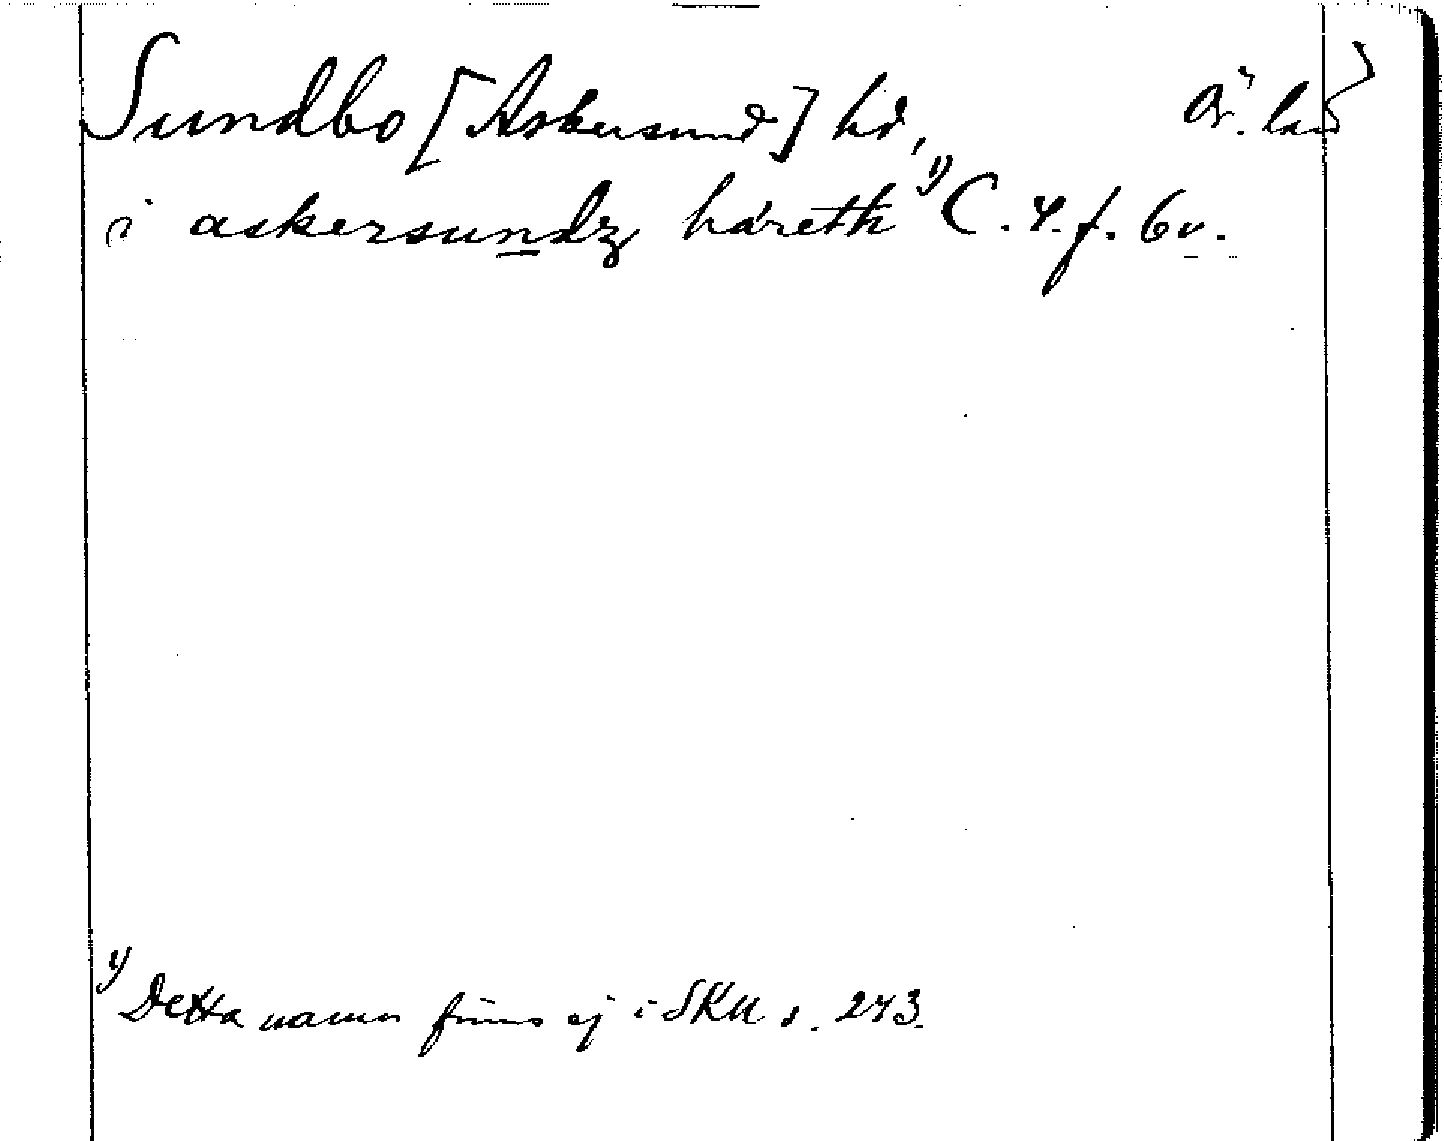 Sundbo [Askersund] hd, Ör. län
i askersundz häreth ¹⁾ C. 4. f. 6v.
¹⁾ Detta namn finns ej i SKU s. 273.